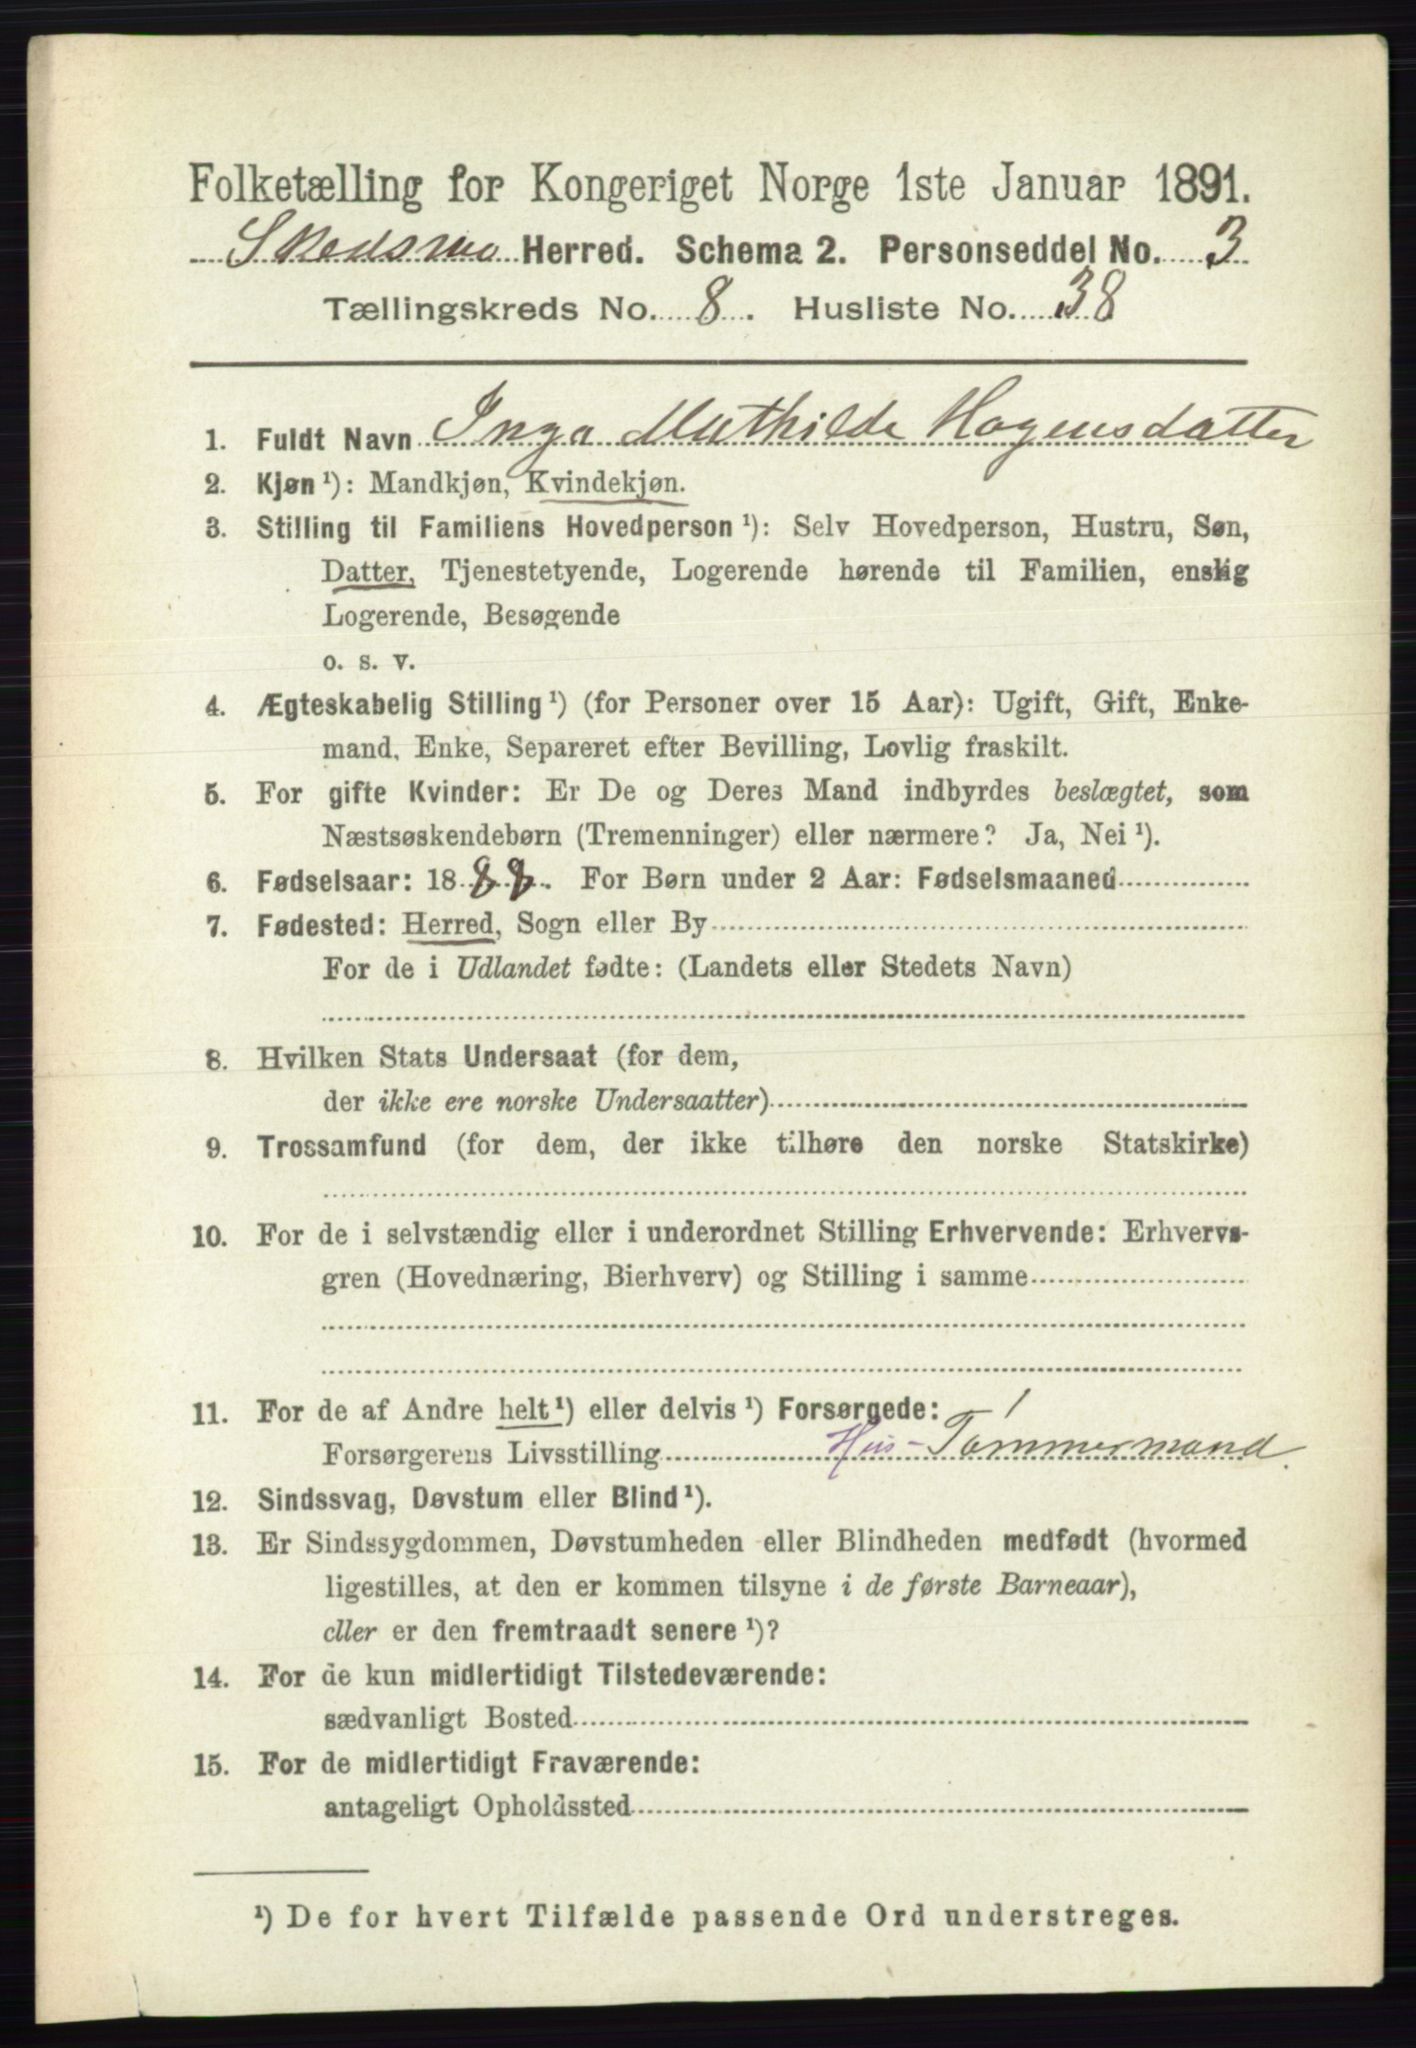 Folketælling for Kongeriget Norge 1ste Januar 1891.
Skedsmo Herred. Schema 2. Personseddel No. 3
Tællingskreds No. 8. Husliste No. 38
1. Fuldt Navn Inga Mathilde Hagensdatter
2. Kjøn ¹): Mandkjøn, Kvindekjøn.
3. Stilling til Familiens Hovedperson ¹): Selv Hovedperson, Hustru, Søn,
Datter, Tjenestetyende, Logerende hørende til Familien, enslig
Logerende, Besøgende
o. s. v.
4. Ægteskabelig Stilling ¹) (for Personer over 15 Aar): Ugift, Gift, Enke-
mand, Enke, Separeret efter Bevilling, Lovlig fraskilt.
5. For gifte Kvinder: Er De og Deres Mand indbyrdes beslægtet, som
Næstsøskendebørn (Tremenninger) eller nærmere? Ja, Nei ¹).
6. Fødselsaar: 1888. For Børn under 2 Aar: Fødselsmaaned
7. Fødested: Herred, Sogn eller By
For de i Udlandet fødte: (Landets eller Stedets Navn)
8. Hvilken Stats Undersaat (for dem,
der ikke ere norske Undersaatter)
9. Trossamfund (for dem, der ikke tilhøre den norske Statskirke)
10. For de i selvstændig eller i underordnet Stilling Erhvervende: Erhvervs-
gren (Hovednæring, Bierhverv) og Stilling i samme
11. For de af Andre helt ¹) eller delvis ¹) Forsørgede:
Forsørgerens Livsstilling Hus-Tømmermand.
12. Sindssvag, Døvstum eller Blind ¹).
13. Er Sindssygdommen, Døvstumheden eller Blindheden medfødt (hvormed
ligestilles, at den er kommen tilsyne i de første Barneaar),
eller er den fremtraadt senere ¹)?
14. For de kun midlertidigt Tilstedeværende:
sædvanligt Bosted
15. For de midlertidigt Fraværende:
antageligt Opholdssted
¹) De for hvert Tilfælde passende Ord understreges.